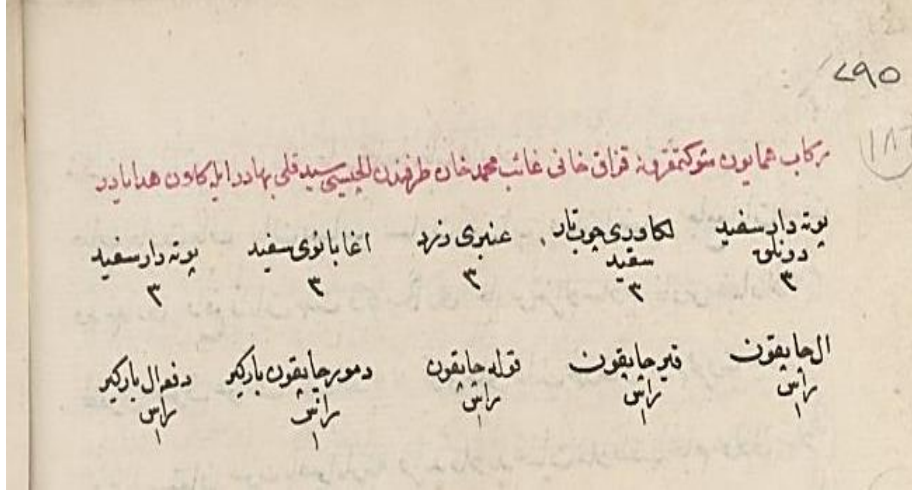 ٧٩٥
١٨٦
ركاب همايون شوكتمقرونه قزاق خانى غائب محمد خان طرفندن ايلچيسى سيد قلى بهادر ايله كلون هدايادر
پوته دار سفيد
دونلق
٣
لكاورى چوب تار سفيد
٣
عنبرى وزرد
٣
اغا بانوى سفيد
٣
پوته دار سفيد
٣
ال چاپقون
رأس
١
قير چاپقون
رأس
١
قوله چاپقون
رأس
١
دمور چاپقون باركير
رأس
١
دفعه ال باركير
رأس
١